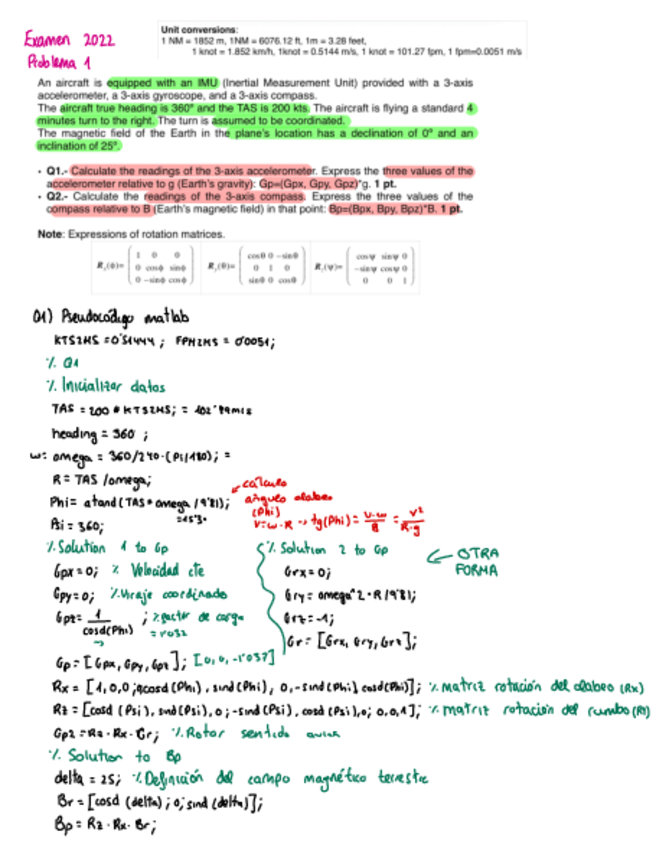 Examen 2022
Problema 1
Unit conversions:
1 NM = 1852 m, 1NM = 6076.12 ft, 1m = 3.28 feet,
1 knot = 1.852 km/h, 1knot = 0.5144 m/s, 1 knot = 101.27 fpm, 1 fpm=0.0051 m/s
An aircraft is equipped with an IMU (Inertial Measurement Unit) provided with a 3-axis
accelerometer, a 3-axis gyroscope, and a 3-axis compass.
The aircraft true heading is 360º and the TAS is 200 kts. The aircraft is flying a standard 4
minutes turn to the right. The turn is assumed to be coordinated.
The magnetic field of the Earth in the plane's location has a declination of 0º and an
inclination of 25º.
• Q1.- Calculate the readings of the 3-axis accelerometer. Express the three values of the
accelerometer relative to g (Earth's gravity): Gp=(Gpx, Gpy, Gpz)*g. 1 pt.
• Q2.- Calculate the readings of the 3-axis compass. Express the three values of the
compass relative to B (Earth's magnetic field) in that point: Bp=(Bpx, Bpy, Bpz)*B. 1 pt.
Note: Expressions of rotation matrices.
1 0 0 cosθ 0 −sinθ cosψ sinψ 0
Rx(ϕ)= 0 cosϕ sinϕ Ry(θ)= 0 1 0 Rz(ψ)= −sinψ cosψ 0
0 −sinϕ cosϕ sinθ 0 cosθ 0 0 1
Q1) Pseudocódigo matlab
KTS2MS = 0'51444 ; FPM2MS = 0'0051;
% Q1
% Inicializar datos
TAS = 200 * KTS2MS; = 102'89m/s
heading = 360 ;
w: omega = 360/240·(Pi/180); =
R = TAS /omega;
Phi= atand(TAS* omega /9'81);
=15'3º
cálculo
ángulo alabeo
(Phi)
v=w·R → tg(Phi) = v·w/g = v²/R·g
Psi = 360;
% Solution 1 to Gp
Gpx = 0; % Velocidad cte
Gpy = 0; % Viraje coordinado
Gpz = 1/cosd(Phi) ; % factor de carga
= 1'032
Gp = [Gpx, Gpy, Gpz]; [0, 0, -1'037]
% Solution 2 to Gp
OTRA
FORMA
Grx = 0;
Gry = omega^2·R/9'81;
Grz = -1;
Gr = [Grx, Gry, Grz];
Rx = [1,0,0; cosd(Phi), sind(Phi); 0,-sind(Phi), cosd(Phi)]; % matriz rotación del alabeo (Rx)
Rz = [cosd (Psi), sind(Psi), 0; -sind(Psi), cosd(Psi),0; 0,0,1]; % matriz rotación del rumbo
Gp2 = Rz · Rx · Gr; % Rotar sentido
% Solution to Bp
delta = 25; % Definición del campo magnético terrestre
Br = [cosd (delta) ; 0; sind (delta)];
Bp = Rz · Rx · Br;